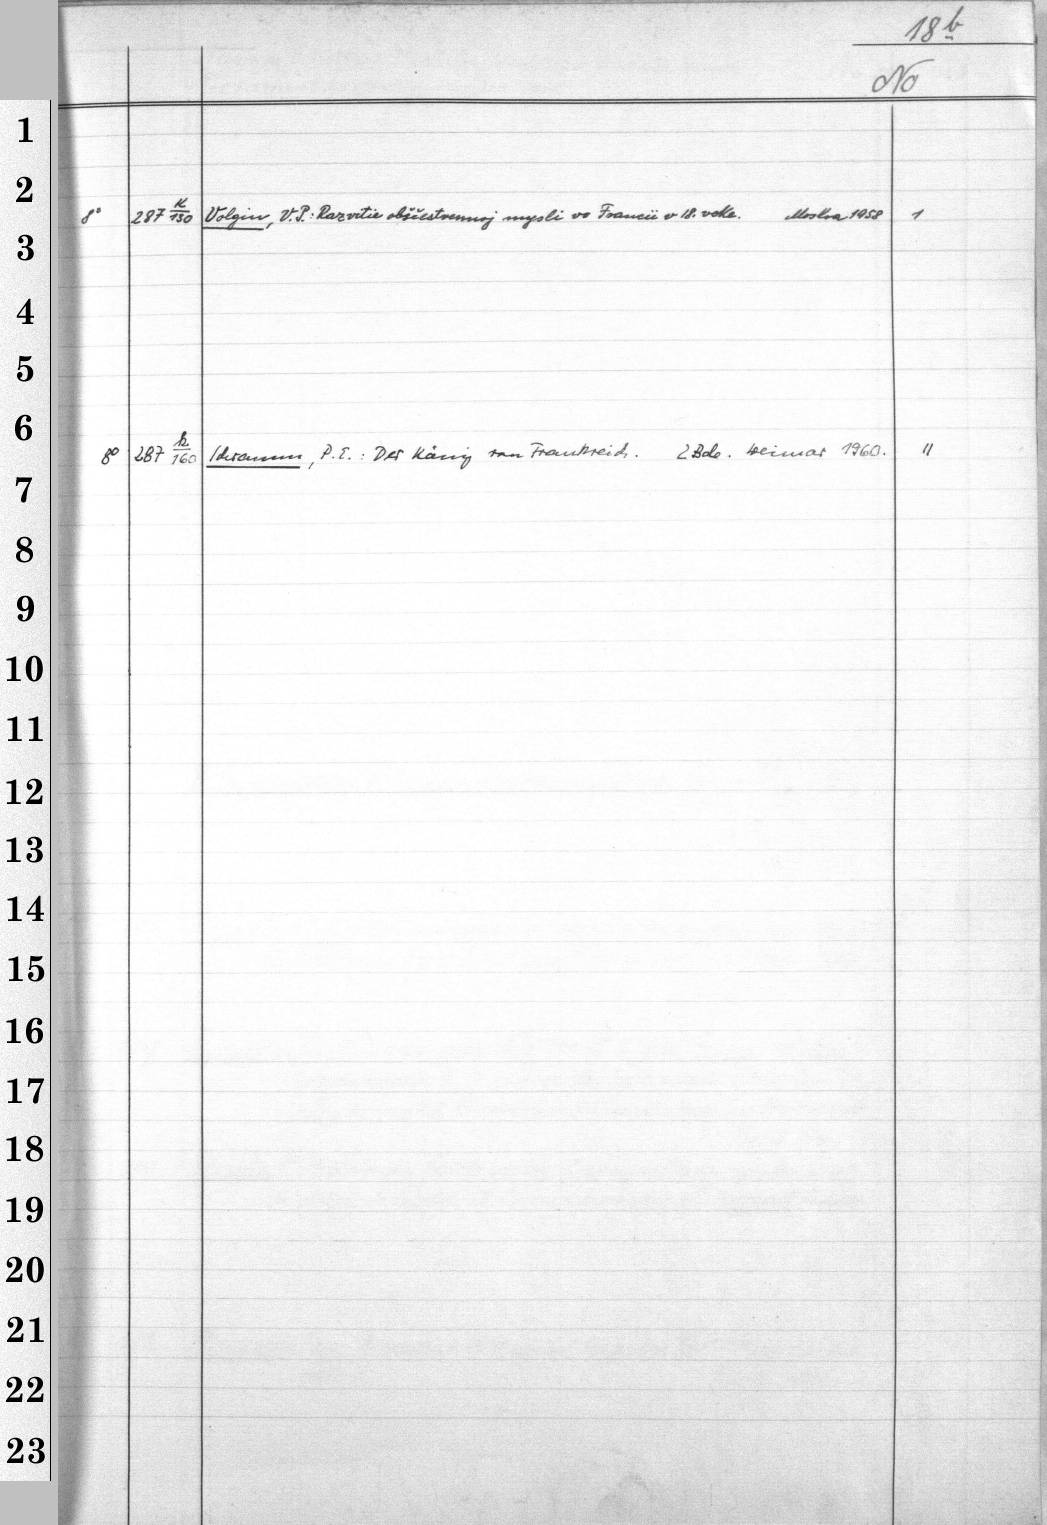 18 b
No
1
2
8° 287 K/150 Volgin, V.P.: Razvitie obščestvennoj mysli vo Francii v 18. veke. Moskva 1958 1
3
4
5
6
8° 287 k/160 Schramm, P.E.: Der König von Frankreich. 2 Bde. Weimar 1960. 11
7
8
9
10
11
12
13
14
15
16
17
18
19
20
21
22
23